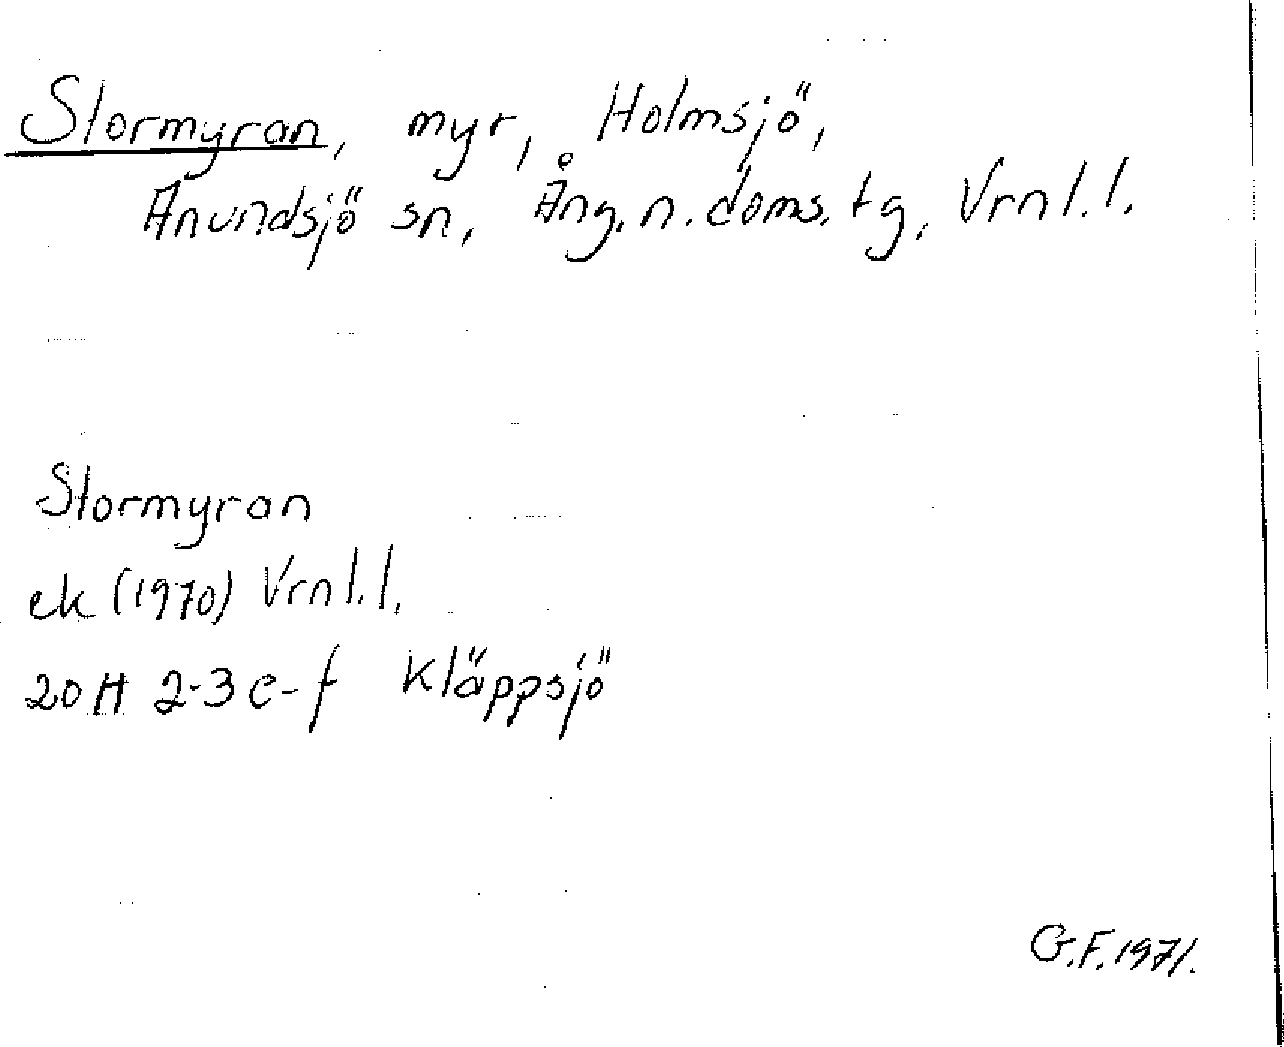 Stormyran, myr, Holmsjö,
Anundsjö sn, Ång. n. doms. tg, Vrnl. l.
Stormyran
ek (1970) Vrnl. l.
20 H 2-3 e-f Kläppsjö
G.F. 1971.